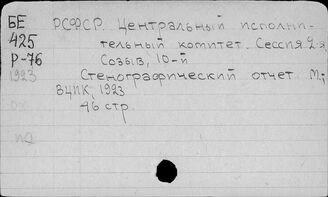 БЕ
425
Р-76
1923
РСФСР. Центральный исполни-
тельный комитет. Сессия 2-я
Созыв, 10-й
Стенографический отчет М.,
ВЦИК, 1923
46 стр.